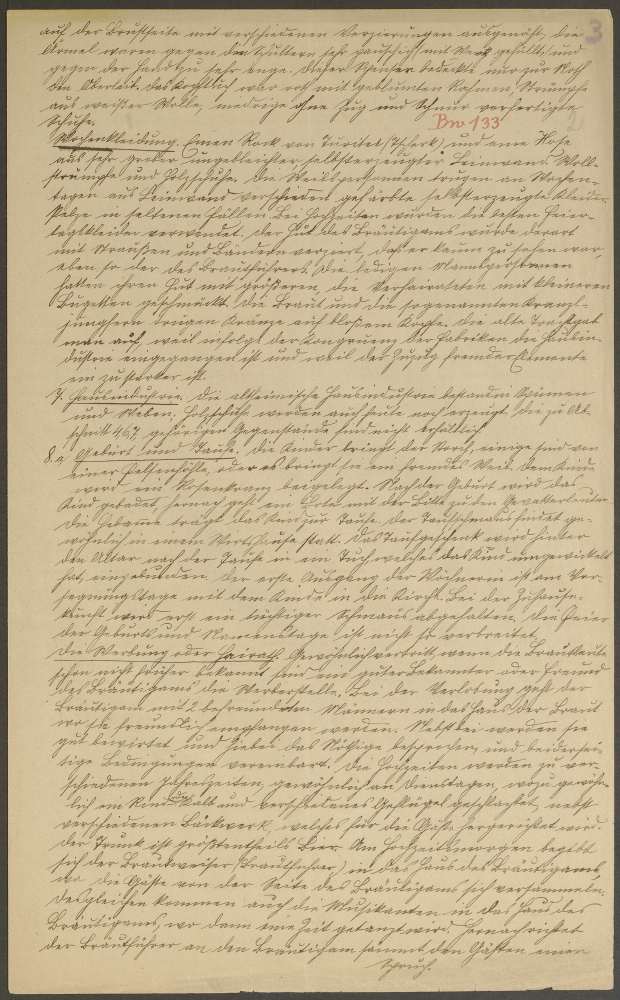 auf der Brustseite mit verschiedenen Verzierungen ausgenäht, die 3
Ärmel waren gegen die Schultern sehr bauschig, mit Werg gefüllt, und
gegen der Hand zu sehr enge. Dieser Spenser bedeckte nur zur Noth
den Oberleib. das Kopftuch war rot mit geblumten Rahmen, Strümpfe
aus weißer Wolle, niedrige ohne Zug und Schnur verfertigte
Schuhe. Bw 133
Wochenkleidung. Einen Rock von und eine Hose
aus sehr grober ungebleichter selbsterzeugter Leinwand, Woll-
strümpfe und Holzschuhe. Die Weibspersonen trugen an Wochen-
tagen aus Leinwand verschieden gefärbte selbsterzeugte Kleider
Pelze in seltenen Fällen. Bei Hochzeiten wurden die besten Feier-
tagskleider verwendet. Der Hut des Bräutigams wurde derart
mit Straußen und Bändern verziert, daß er kaum zu sehen war,
eben so der des Brautführers. Die ledigen Mannspersonen
hatten ihren Hut mit größeren, die Verheirateten mit kleineren
Buqetten geschmückt. Die Braut und die sogenannten Kranzl-
jungfern trugen Kränze auf bloßem Kopfe. Die alte Tracht hat
man auf, weil infolge der der Fabriken die Hausin-
dustrie eingegangen ist und weil der Zuzug fremder Elemente
ein zu starker ist.
7. Hausindustrie. Die altheimische Hausindustrie bestand in Spinnen
und Weben. Holzschuhe werden auch heute noch erzeugt. die zu Ab-
schnitt 4 6 7 gehörigen Gegenstände sind nicht erhältlich.
8. a Geburt und Taufe. Die Kinder bringt der Storch, einige sind von
einer Felsenhöhle, oder es bringt sie ein fremdes Weib. Dem Kinde
wird ein Rosenkranz beigelegt. Nach der Geburt wird das
Kind gebadet, hernach geht ein Bote mit der Bitte zu den Gevattersleuten.
Die Hebamme trägt das Kind zur Taufe. Der Taufschmaus findet ge-
wöhnlich in einem Wirtshause statt. Das Taufgeschenk wird hinter
den Altar nach der Taufe in ein Tuch, welches das Kind umgewickelt
hat, eingebunden. Der erste Ausgang der Wöchnerin ist am Vor-
segnungstage mit dem Kinde in die Kirche. Bei der Zuhause-
kunft wird erst ein tüchtiger Schmaus abgehalten. Die Feier
der Geburts und Namenstage ist nicht so verbreitet.
Die Werbung oder Heirath. Gewöhnlich vertritt wenn die Brautleute
schon nicht früher bekannt sind ein guter Bekannter oder Freund
des Bräutigams die Werberstelle. Bei der Verlobung geht der
Bräutigam mit 2 befreundeten Männern in das Haus der Braut
wo sie freundlich empfangen werden. Nebstbei werden sie
gut bewirtet, und hiebei das Nötige besprochen, und beidersei-
tige Bedingungen vereinbart. Die Hochzeiten werden zu ver-
schiedenen Jahreszeiten, gewöhnlich an Dienstagen, wozu gewöhn-
lich ein Rind, Kalb und verschiedenes Geflügel geschlachtet, nebst
verschiedenen Backwerk, welches für die Gäste hergerichtet wird.
der Trunk ist größtentheils Bier. Am Hochzeitsmorgen begibt
sich der Brautweiser (Brautführer) in das Haus des Bräutigams,
wo die Gäste von der Seite des Bräutigams sich versammeln.
Desgleichen kommen auch die Musikanten in das Haus des
Bräutigams, wo dann eine Zeit getanzt wird. Hernach richtet
der Brautführer an den Bräutigam sammt den Gästen einen
Spruch.